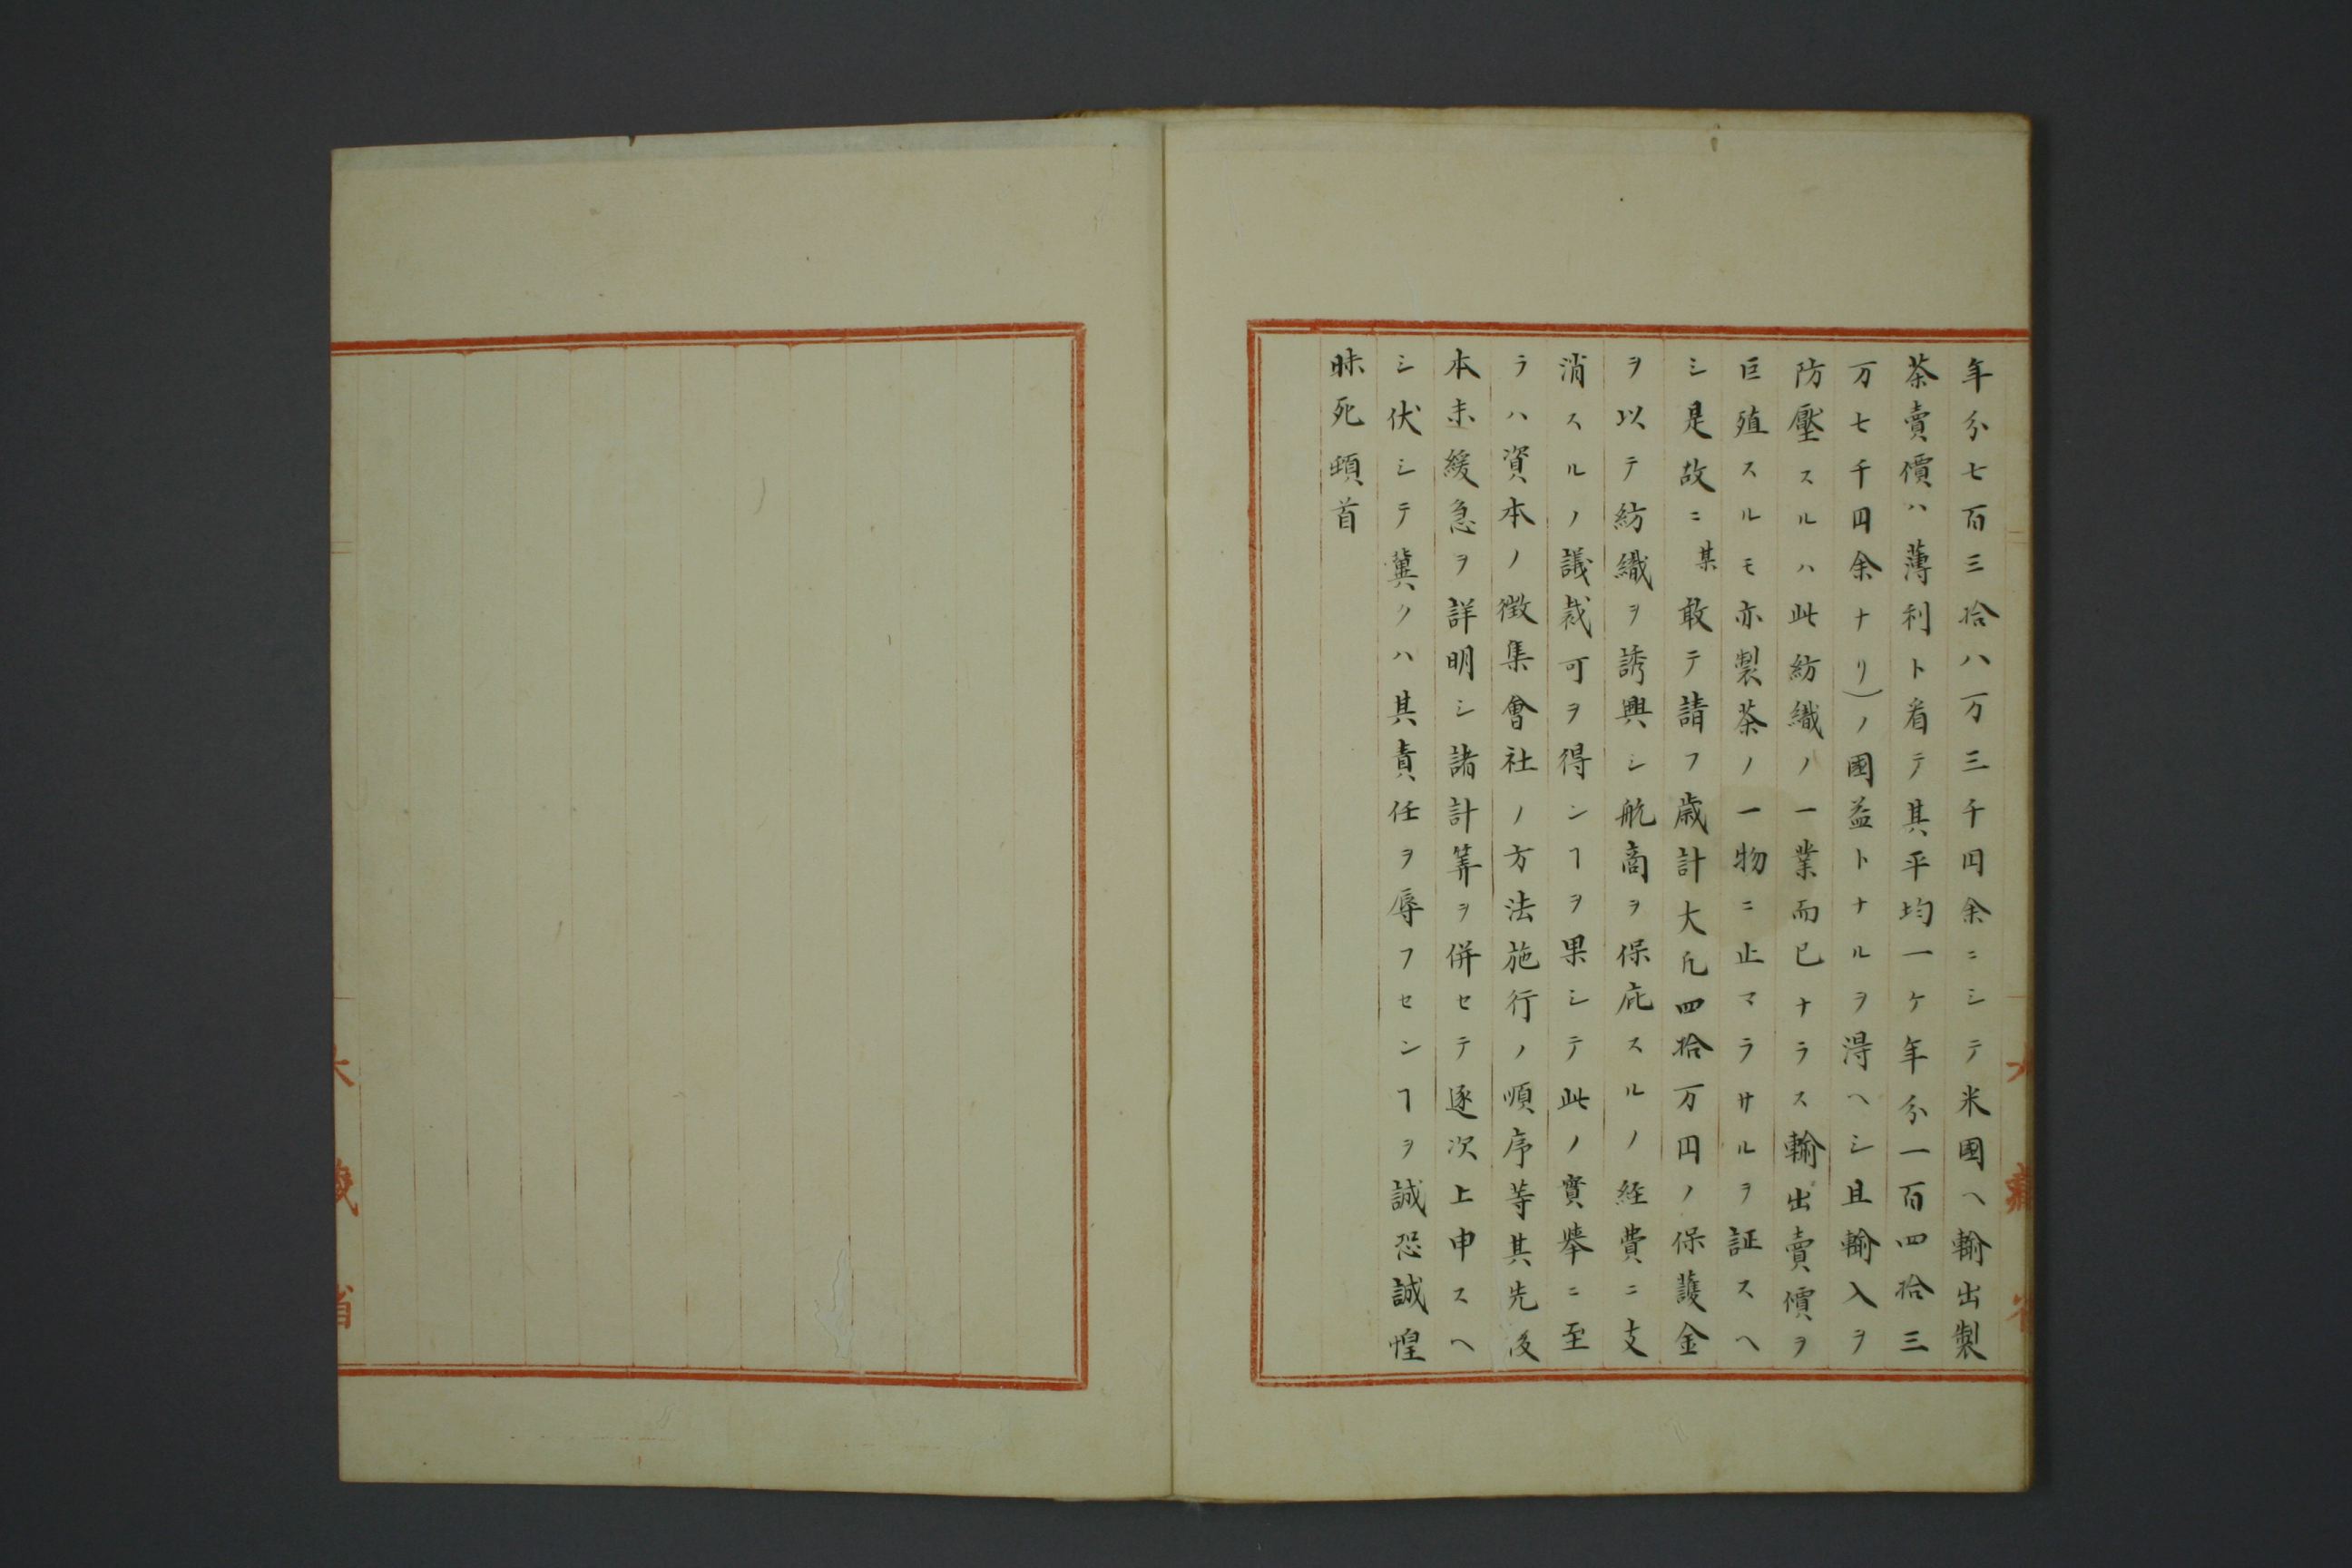 年分七百三拾八万三千円余ニシテ米國ヘ輸出製
茶賣價ハ薄利ト看テ其平均一ケ年分一百四拾三
万七千円余ナリ)ノ國益トナルヲ得ヘシ且輸入ヲ
防壓スルハ此紡織ノ一業而已ナラス輸出賣價ヲ
巨殖スルモ亦製茶ノ一物ニ止マラサルヲ証スヘ
シ是故ニ某敢テ請フ歳計大凡四拾万円ノ保護金
ヲ以テ紡織ヲ誘興シ航商ヲ保庇スルノ経費ニ支
消スルノ議裁可ヲ得ンヿヲ果シテ此ノ實擧ニ至
ラハ資本ノ徴集會社ノ方法施行ノ順序等其先後
本末緩急ヲ詳明シ諸計筭ヲ併セテ逐次上申スヘ
シ伏シテ冀クハ其責任ヲ辱フセンヿヲ誠恐誠惶
昧死頓首
大藏省
大藏省